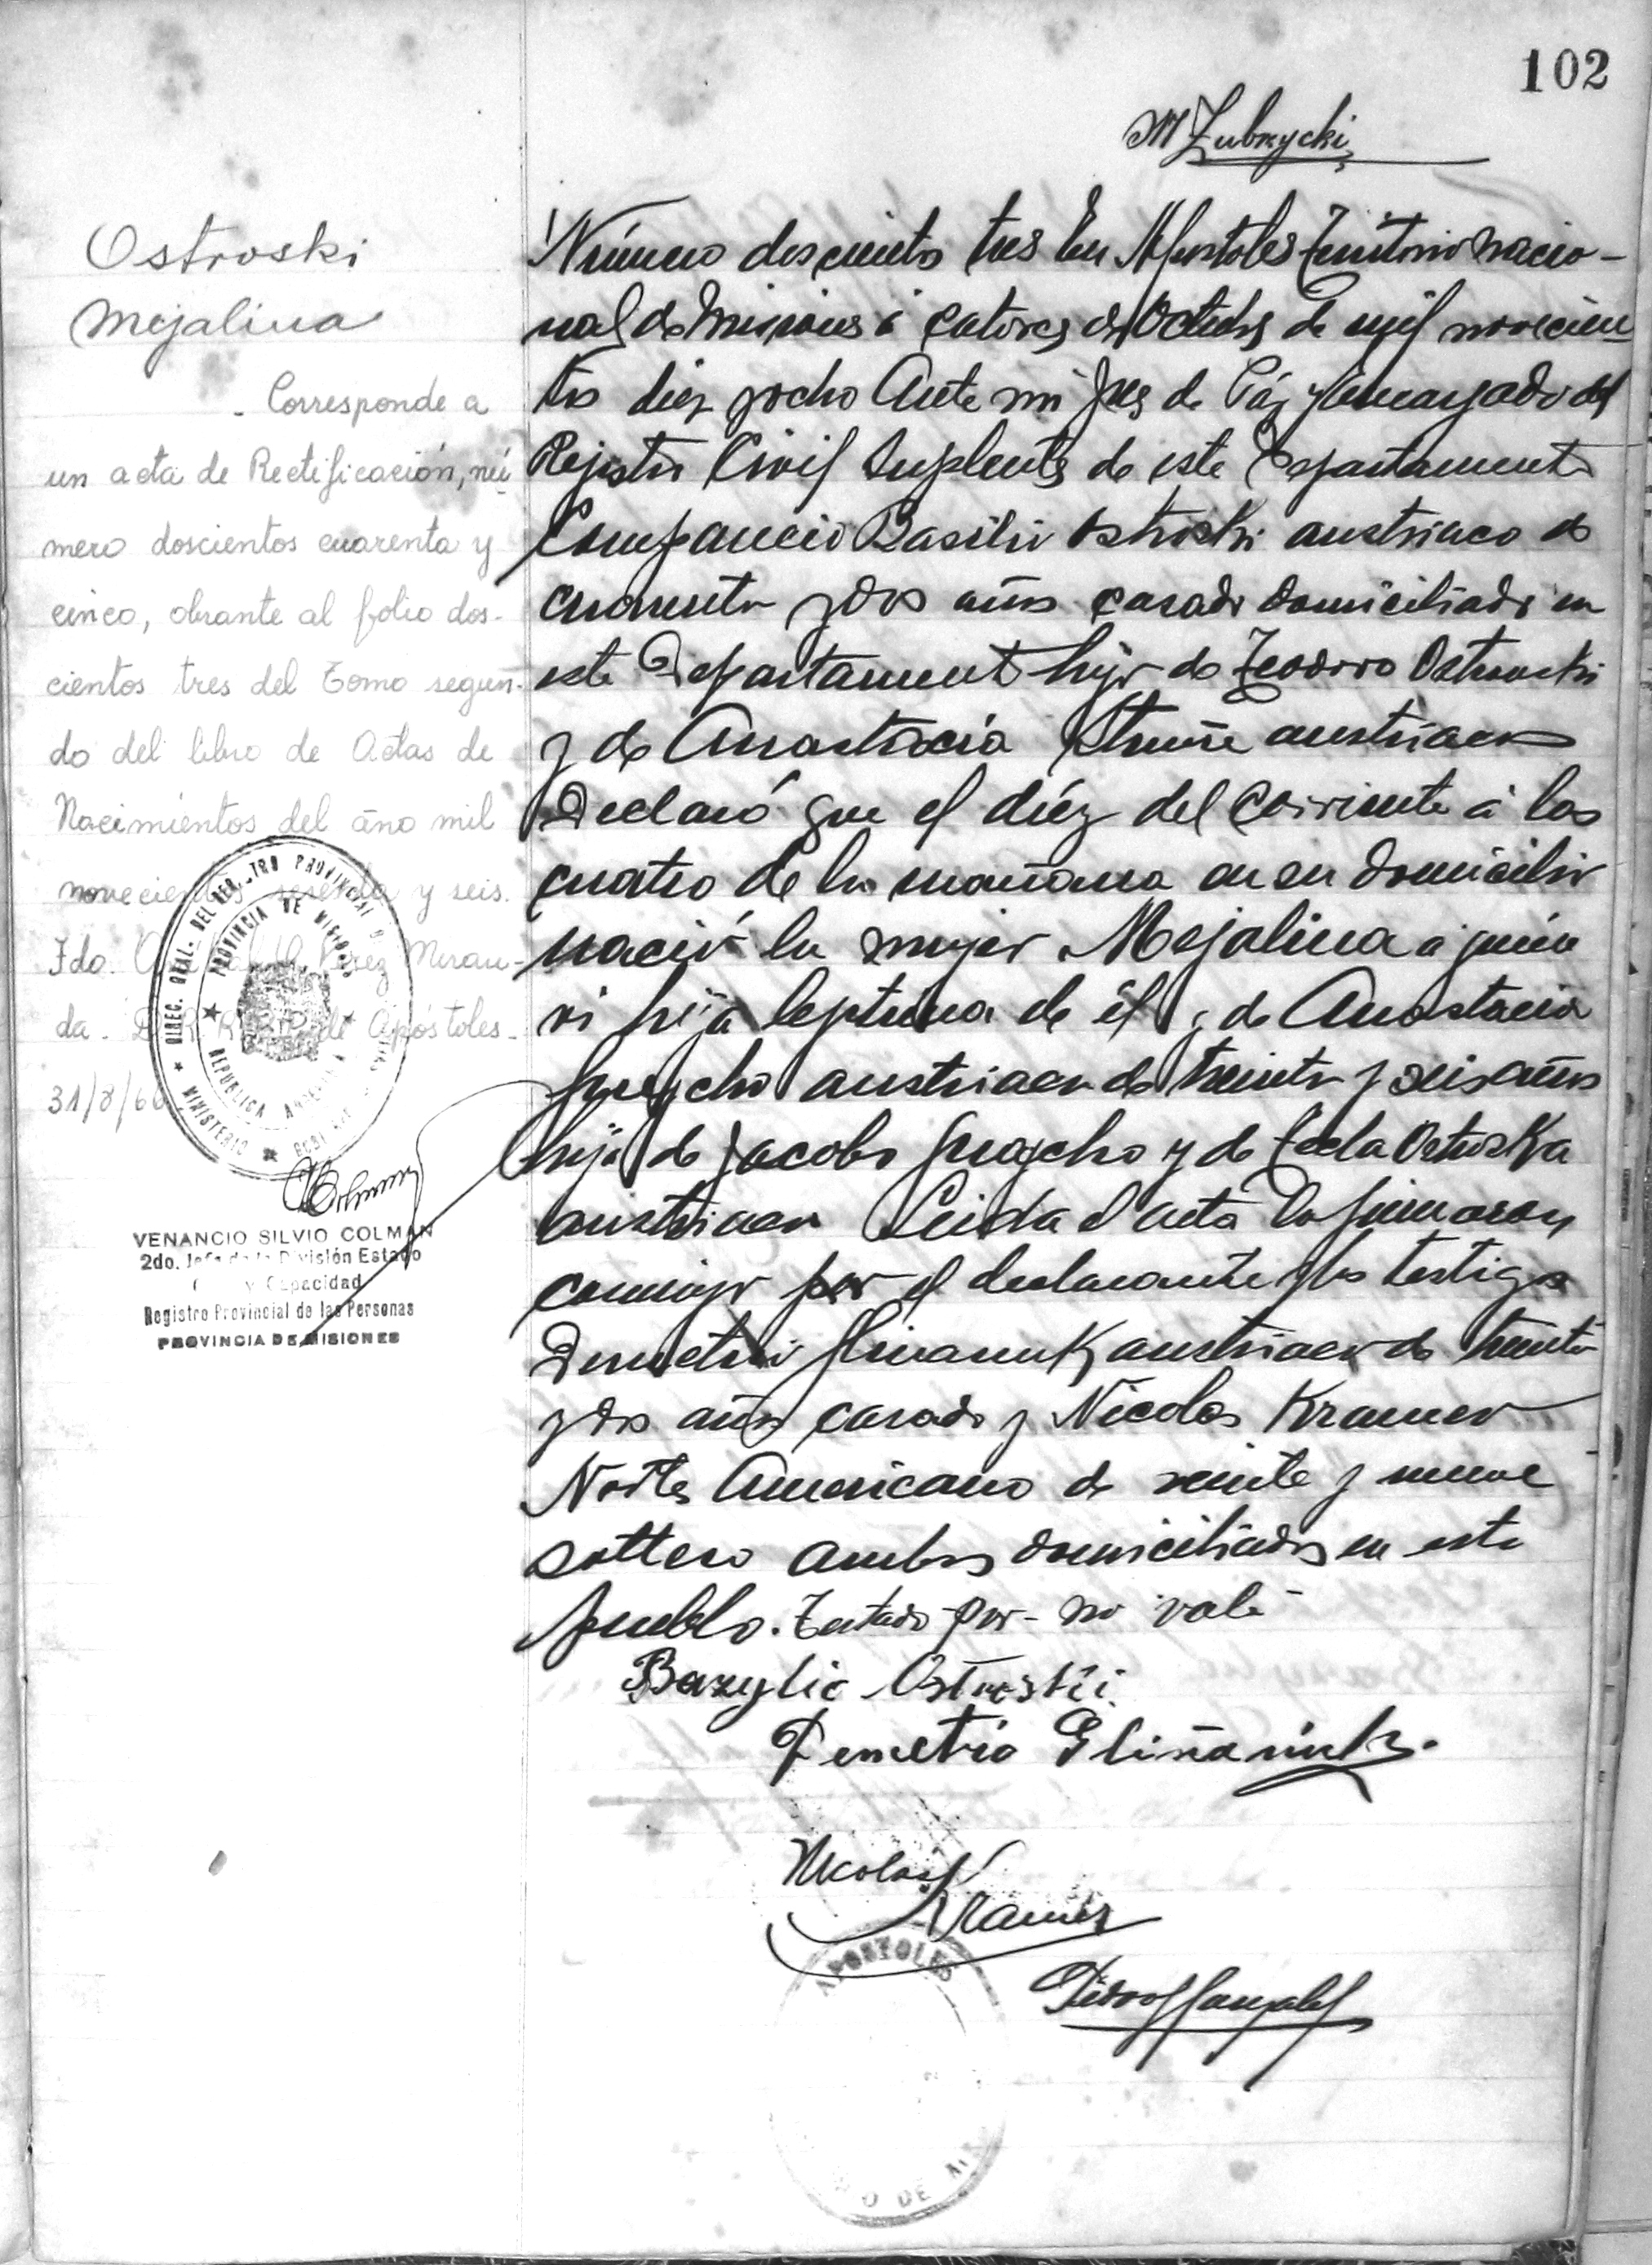 102
M Zubrzycki
Ostroski
Mejalina
Corresponde a
un acta de Rectificación, nú-
mero doscientos cuarenta y
cinco, obrante al folio dos-
cientos tres del Tomo segun-
do del libro de Actas de
Nacimientos del año mil
novecientos sesenta y seis.
Fdo. Perez Miran-
da. de Apóstoles.
31/8/66
DIREC. GRAL. DEL REGISTRO PROVINCIAL
PROVINCIA DE MISIONES
REPUBLICA ARGENTINA
MINISTERIO
VENANCIO SILVIO COLMAN
2do. Jefe de la División Estado
y Capacidad
Registro Provincial de las Personas
PROVINCIA DE MISIONES
Número doscientos tres En Apostoles Territorio nacio-
nal de Misiones á catorce de Octubre de mil novecien
tos diez y ocho Ante mi Juez de Páz y Encargado del
Rejistro Civil Suplente de este Departamento
Compareció Basilio Ostroski austriaco de
cuarenta y dos años casado domiciliado en
este Departamento hijo de Teodoro Ostroski
y de Anastacia austriacos
Declaró que el diéz del corriente á las
cuatro de la mañana en su domicilio
nació la mujer Mejalina a quien
vi hija leptima de él y de Anastacia
austriaca de treinta y seis años
hija de Jacobo y de Tecla Ostroska
austriaca Leida el acta la firmaron
conmigo por el declarante y los testigos
Demetrio austriaco de treinta
y dos años casado y Nicolas Kramer
Norte Americano de veinte y nueve
soltero ambos domiciliados en este
pueblo. Testado-por- no vale
Bazylie Ostroski
Demetrio
Nicolas Kramer
Pedro Gonzalez
APOSTOLES